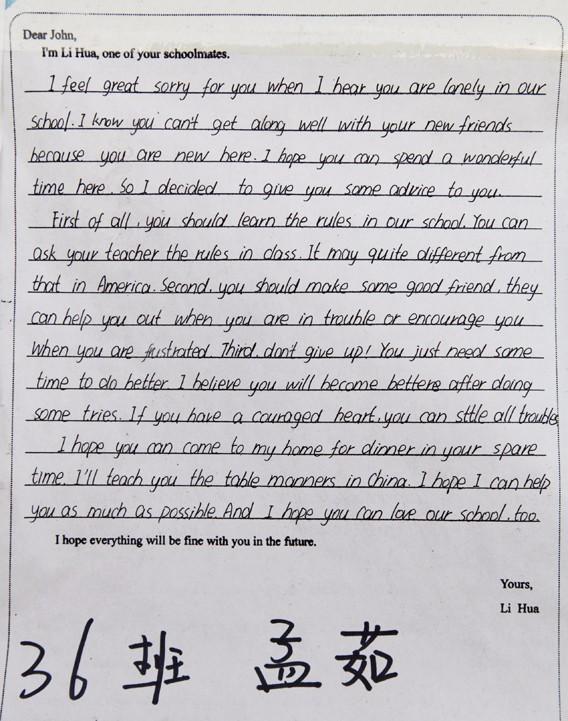 Dear John,
I'm Li Hua, one of your schoolmates.
I feel great sorry for you when I hear you are lonely in our
school. I know you can't get along well with your new friends
because you are new here. I hope you can spend a wonderful
time here. So I decided to give you some advice to you.
First of all, you should learn the rules in our school. You can
ask your teacher the rules in class. It may quite different from
that in America. Second, you should make some good friend, they
can help you out when you are in trouble or encourage you
when you are frustrated. Third, don't give up! You just need some
time to do better. I believe you will become bettere after doing
some tries. If you have a couraged heart, you can sttle all troubles.
I hope you can come to my home for dinner in your spare
time. I'll teach you the table manners in China. I hope I can help
you as much as possible. And I hope you can love our school, too.
I hope everything will be fine with you in the future.
Yours,
Li Hua
36班 孟茹